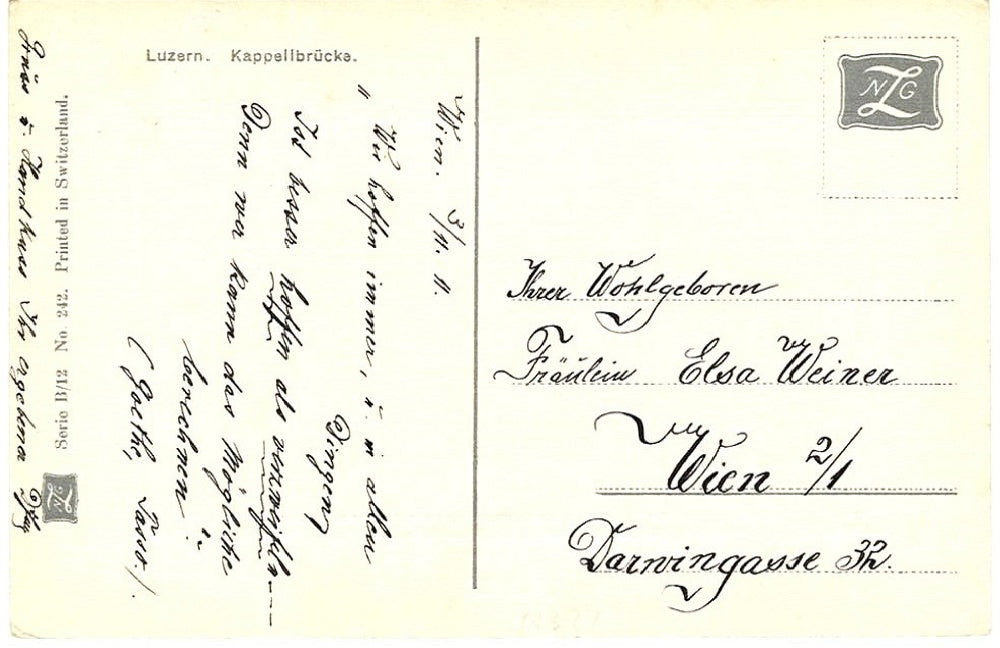 Luzern. Kappellbrücke.
Wien. 3/11. 11.
" Wir hoffen immer, u. in allen
Dingen
Ist besser hoffen als verzweifeln---
Denn wer kann das Mögliche
berechnen "
(Goethe, Tasso.)
Gruss u. Handkuss Ihr ergebener
Serie B/12 No. 242. Printed in Switzerland.
NZG
NZG
Ihrer Wohlgeboren
Fräulein Elsa Weiner
Wien 2/1
Darwingasse 32.